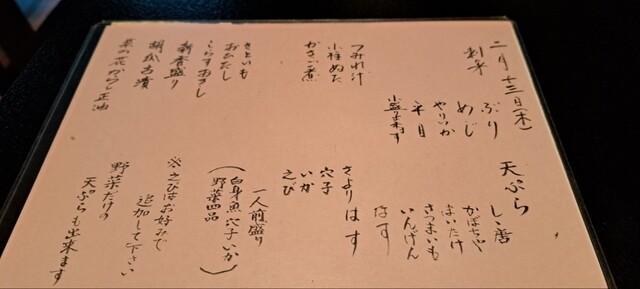 二月十三日(木)
刺身
ぶり
めじ
やりいか
平目
小盛り出来ます
つみれ汁
小柱ぬた
かさご煮
さといも
おひたし
しらすおろし
新香盛り
胡瓜古漬
菜の花からし正油
天ぷら
しい茸
かぼちゃ
まいたけ
さつまいも
いんげん
なす
はす
さより
穴子
いか
えび
一人前盛り
(白身魚 穴子 いか
野菜四品)
※えびはお好みで
追加して下さい
野菜だけの
天ぷらも出来ます